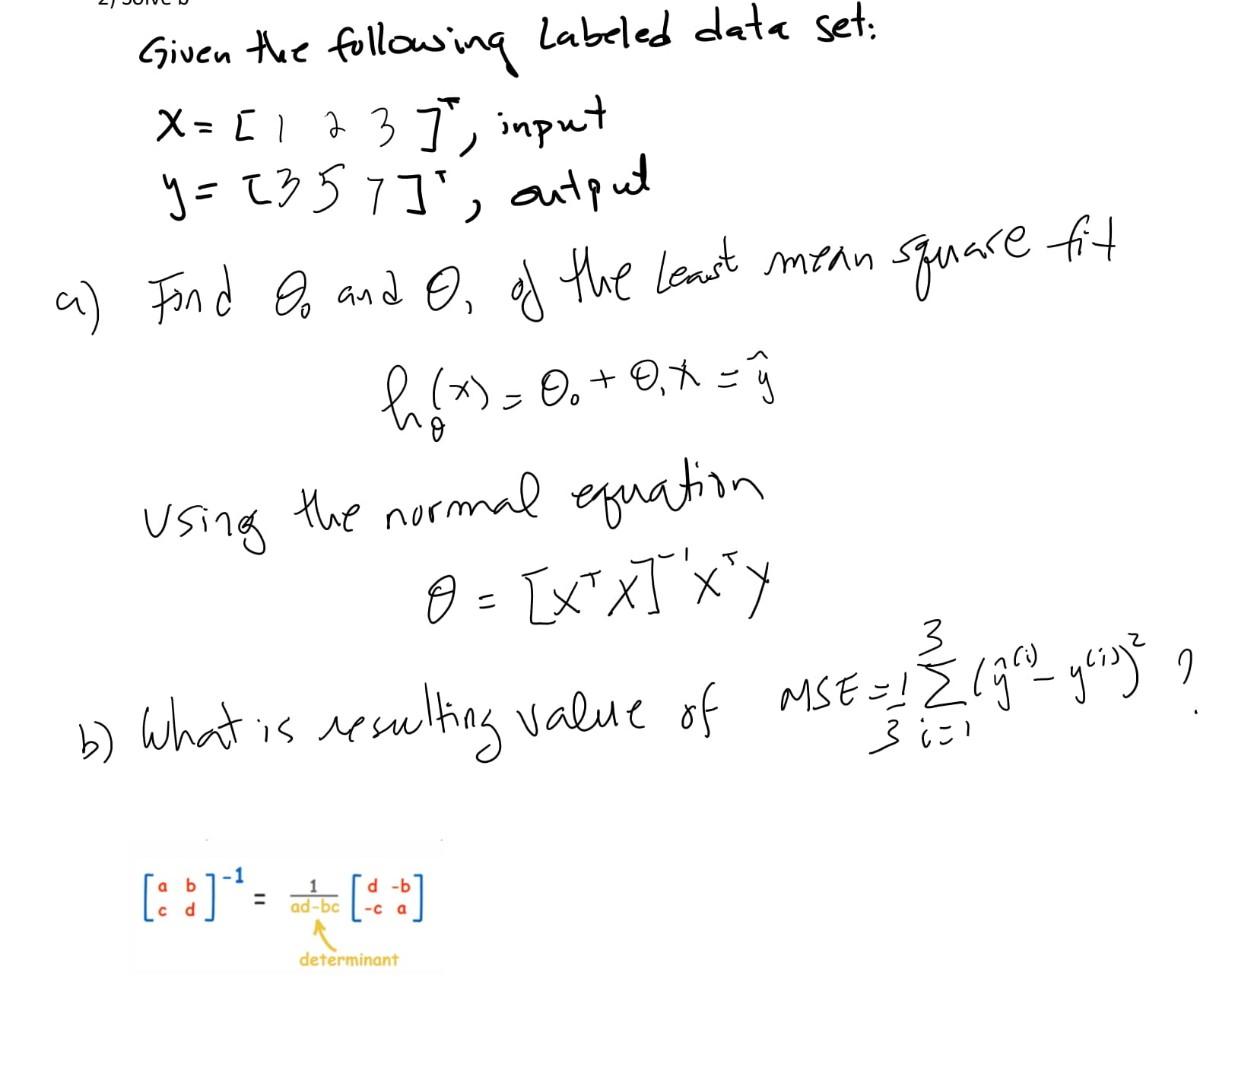 2) Solve b
Given the following Labeled data set:
X = [ 1 2 3 ]ᵀ, input
y = [3 5 7]ᵀ, output
a) Find θ₀ and θ₁ of the least mean square fit
h_θ(x) = θ₀ + θ₁x = ŷ
Using the normal equation
θ = [XᵀX]⁻¹Xᵀy
b) What is resulting value of MSE = 1/3 Σ_{i=1}^{3} (ŷ⁽ⁱ⁾ - y⁽ⁱ⁾)² ?
[a b; c d]⁻¹ = 1/(ad-bc) [d -b; -c a]
determinant